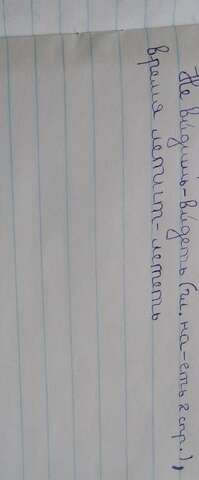 Не видишь-видеть (гл. на -еть 2 спр.),
время летит-лететь